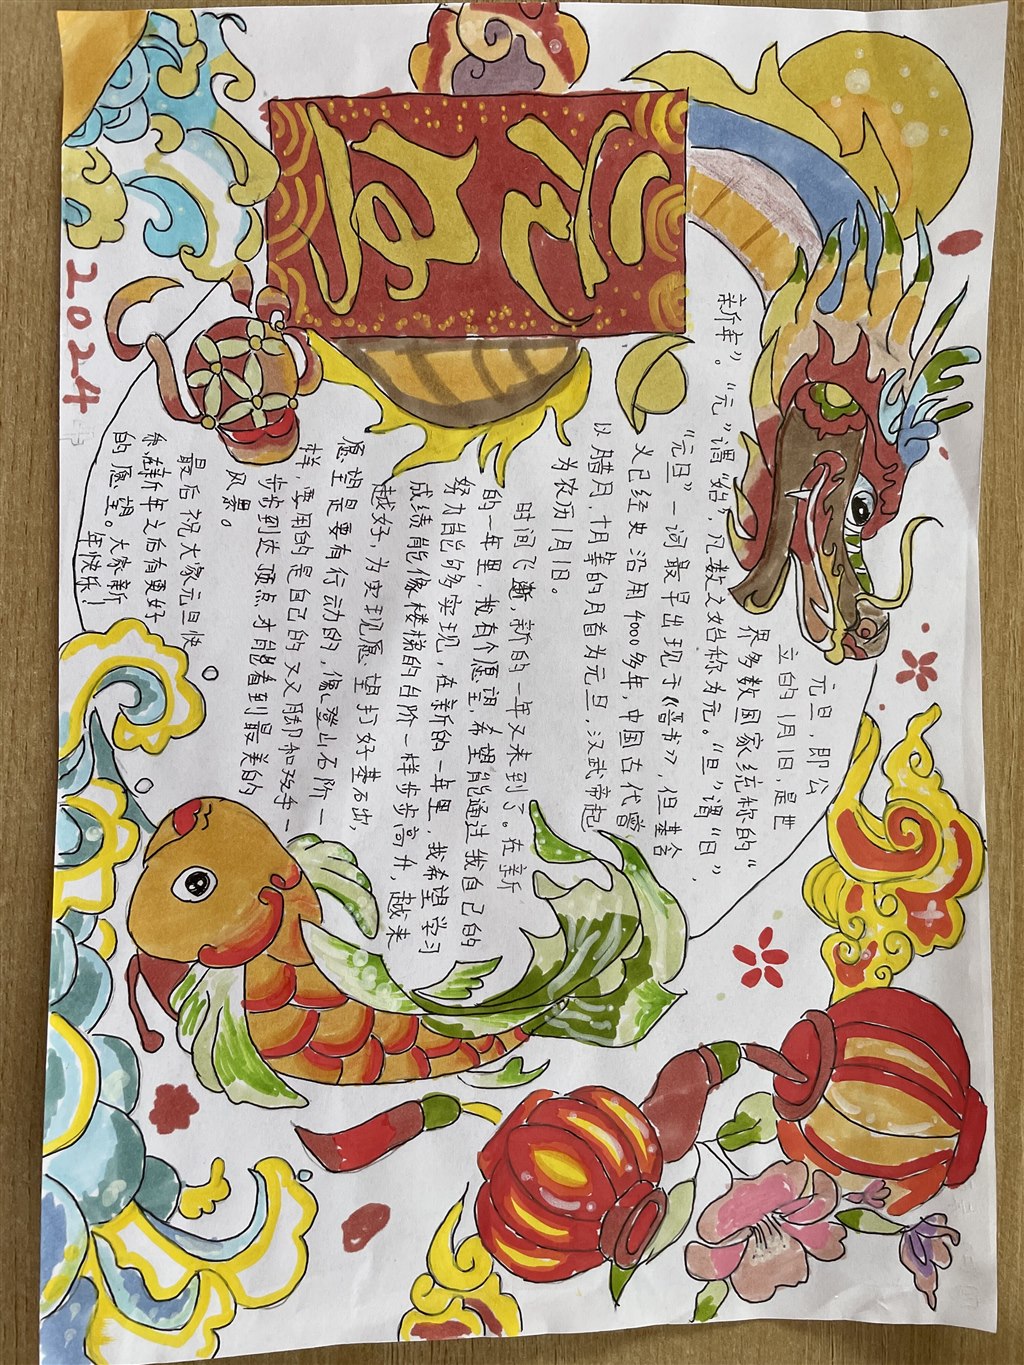 元旦
元旦，即公
立的1月1日，是世
界多数国家统称的“
新年”。“元”谓“始”，凡数之始称为元。“旦”谓“日”，
“元旦”一词最早出现于《晋书》，但其含
义已经史沿用4000多年，中国古代曾
以腊月，十月等的月首为元旦，汉武帝起
为农历1月1日。
时间飞逝，新的一年又来到了。在新
的一年里，我有个愿望，希望能通过我自己的
努力能够多实现，在新的一年里，我希望学习
成绩能像楼梯的台阶一样步步高升，越来
越好，为实现愿望打好基石出，
愿望是要有行动的，像登山石阶一
样，要用的是自己的双脚和双手一
步步到达顶点才能看到最美的
风景。
最后祝大家元旦快
乐在新年之后有更好
的愿望。大家新
年快乐！
2024